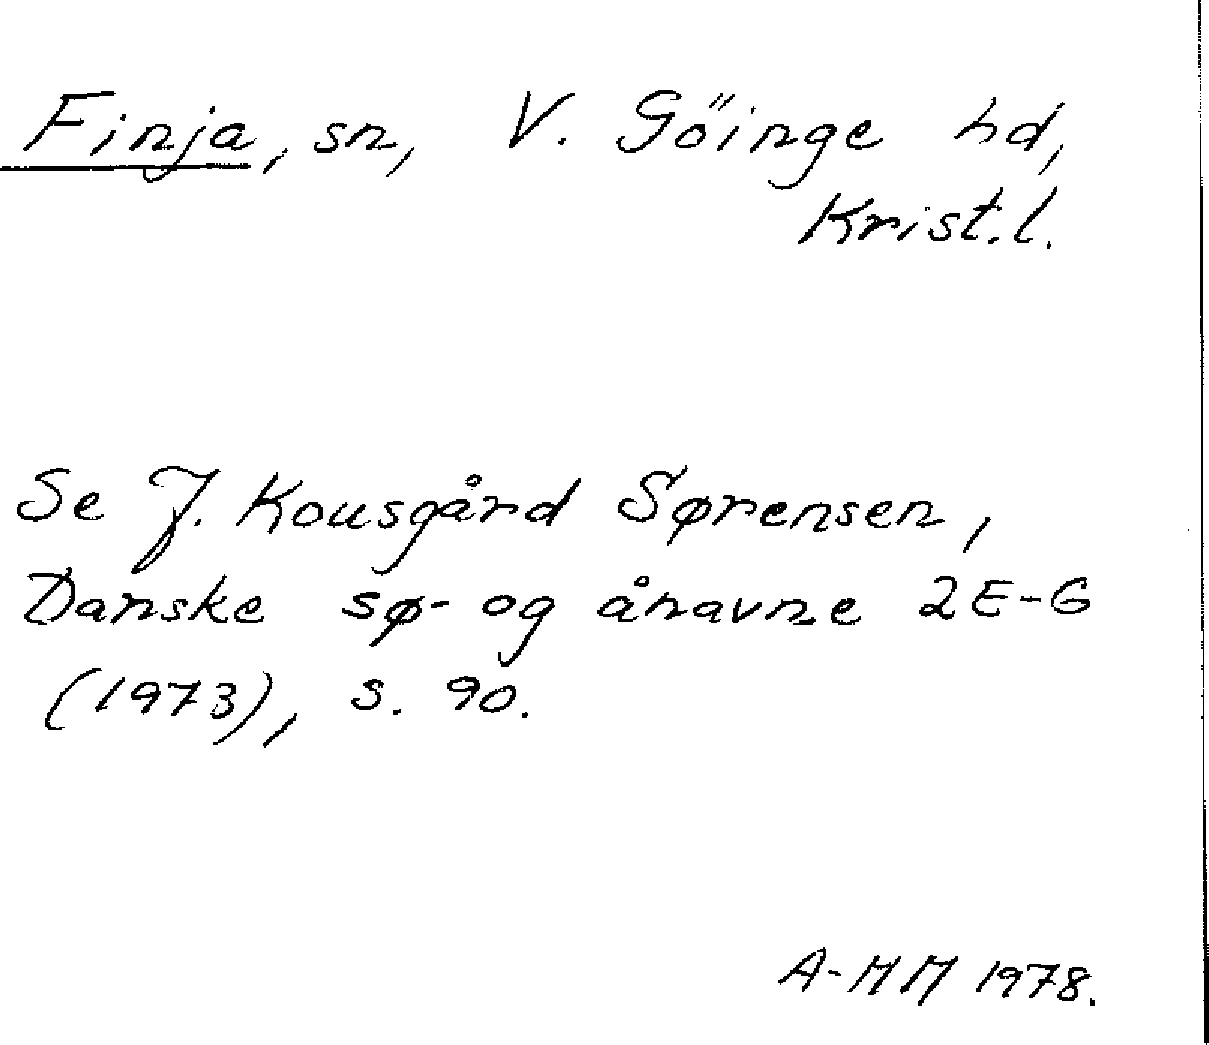 Finja, sn, V. Göinge hd,
Krist.l.
Se J. Kousgård Sørensen,
Danske sø- og ånavne 2E-G
(1973), s. 90.
A-MM 1978.